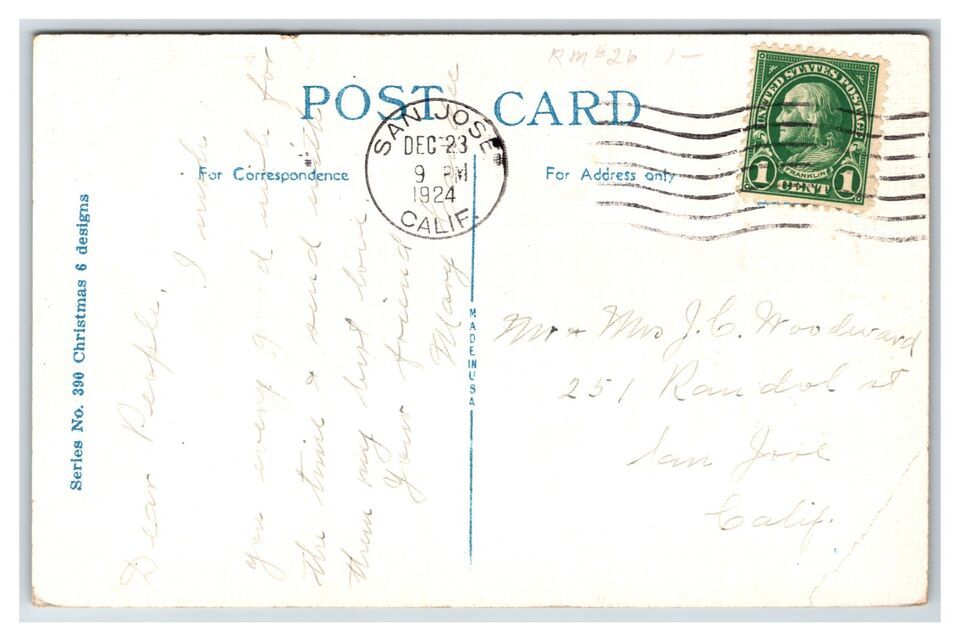 RM#26 1-
POST CARD
SAN JOSE
DEC 23
9 PM
1924
CALIF.
UNITED STATES POSTAGE
FRANKLIN
1 CENT 1
For Correspondence
For Address only
Series No. 390 Christmas 6 designs
MADE IN USA
Dear People,
I wish
you every good wish for
the time & send with
them my best love.
Your friend
Mary
Mr & Mrs J. C. Woodward
251 Randol st
San Jose
Calif.